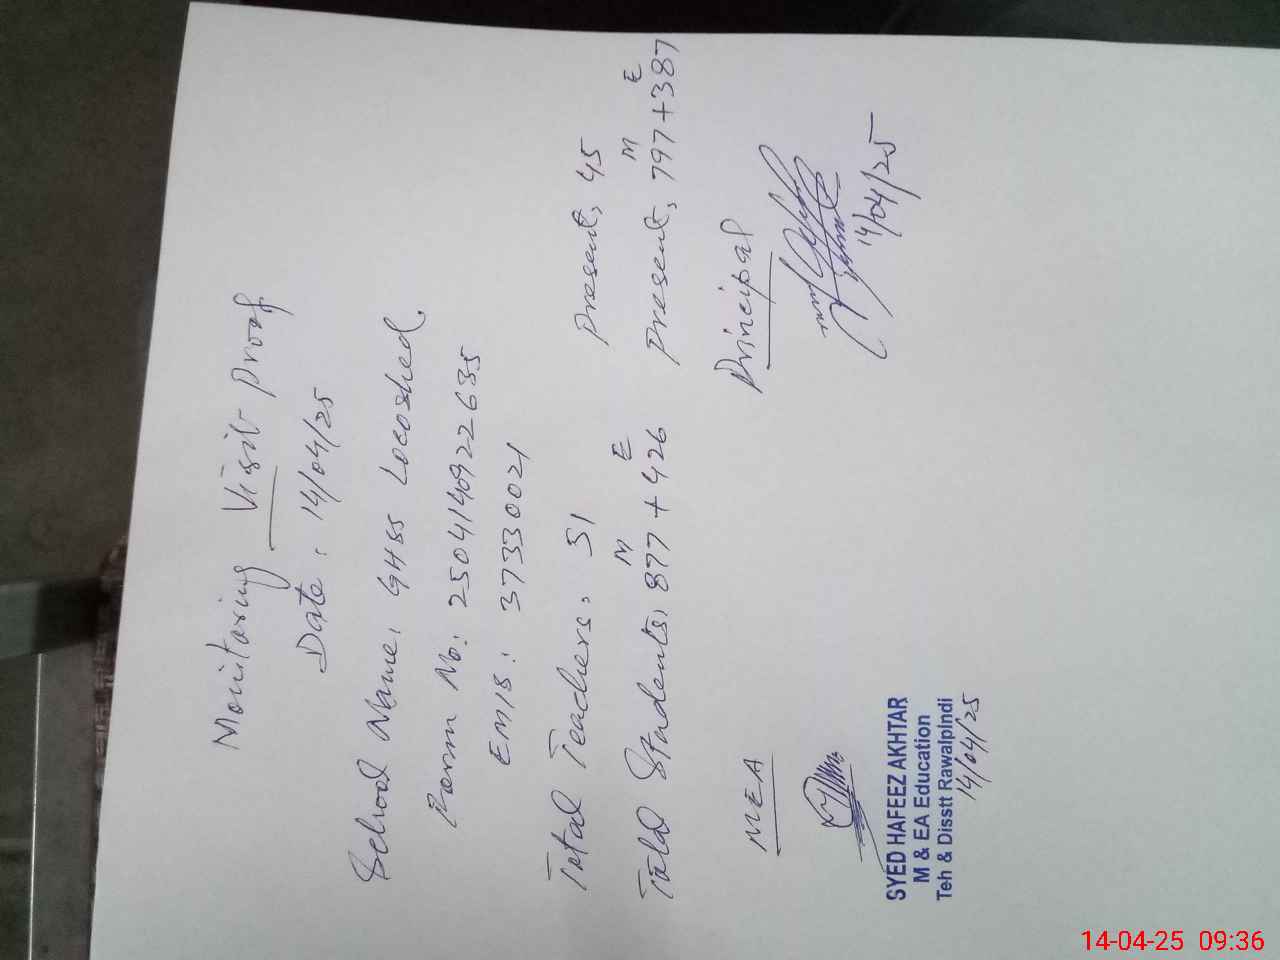 Monitoring Visit Proof
Date: 14/04/25
School Name: GHSS Locoshed.
Form No: 2504140922635
EMIS: 37330021
Total Teachers: 51 Present, 45
M E M E
Total Students: 877 + 426 Present, 797 + 387
MEA Principal
14/04/25
SYED HAFEEZ AKHTAR
M & EA Education
Teh & Disstt Rawalpindi
14/04/25
14-04-25 09:36